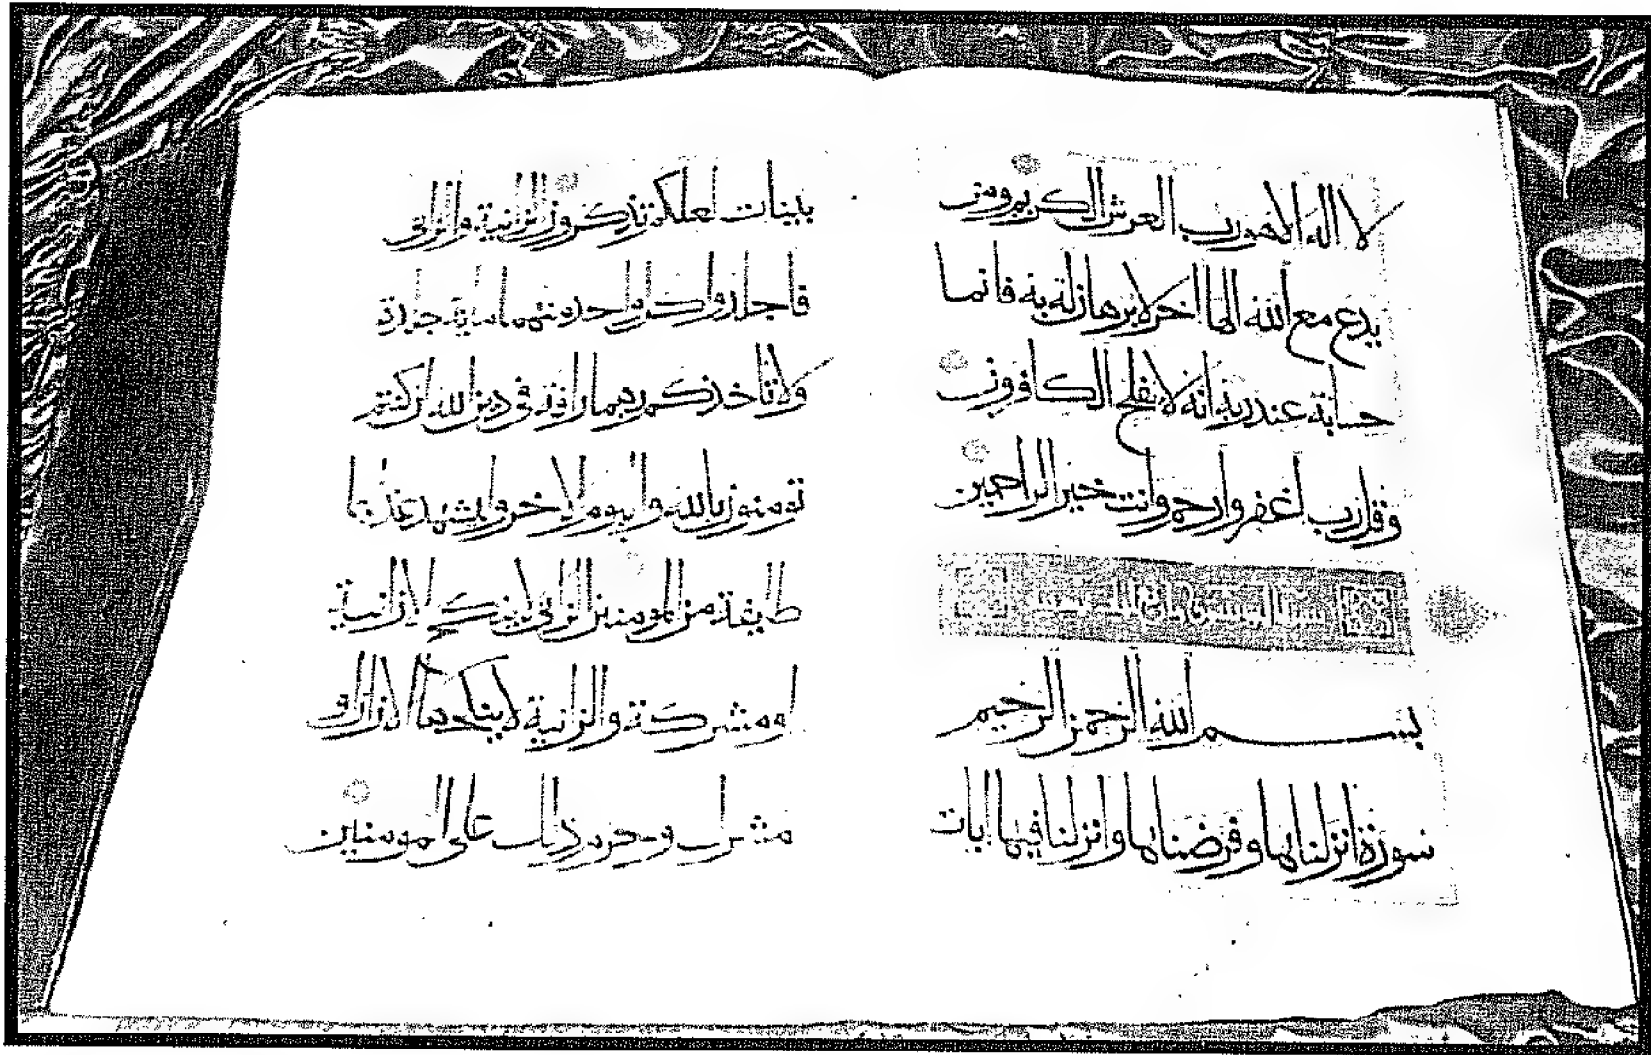 لا اله الا هو رب العرش الكريم ومن
يدع مع الله الها اخر لا برهان له به فانما
حسابه عند ربه انه لا يفلح الكافرون
وقل رب اغفر وارحم وانت خير الراحمين
بسم الله الرحمن الرحيم
سورة انزلناها وفرضناها وانزلنا فيها ايات
بينات لعلكم تذكرون الزانية والزاني
فاجلدوا كل واحد منهما ماية جلدة
ولا تاخذكم بهما رافة في دين الله ان كنتم
تومنون بالله واليوم الاخر وليشهد عذابهما
طايفة من المومنين الزاني لا ينكح الا زانية
او مشركة والزانية لا ينكحها الا زان او
مشرك وحرم ذلك على المومنين